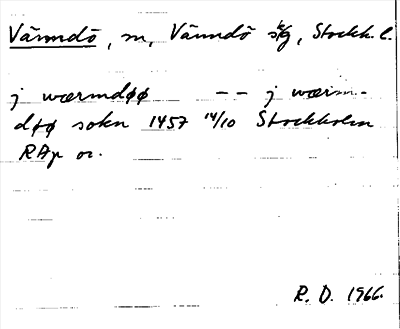 Värmdö, sn, Värmdö skg, Stockh. l.
j wærmdøø -- j wærm-
døø sokn 1457 14/10 Stockholm
RAp or.
R. D. 1966.